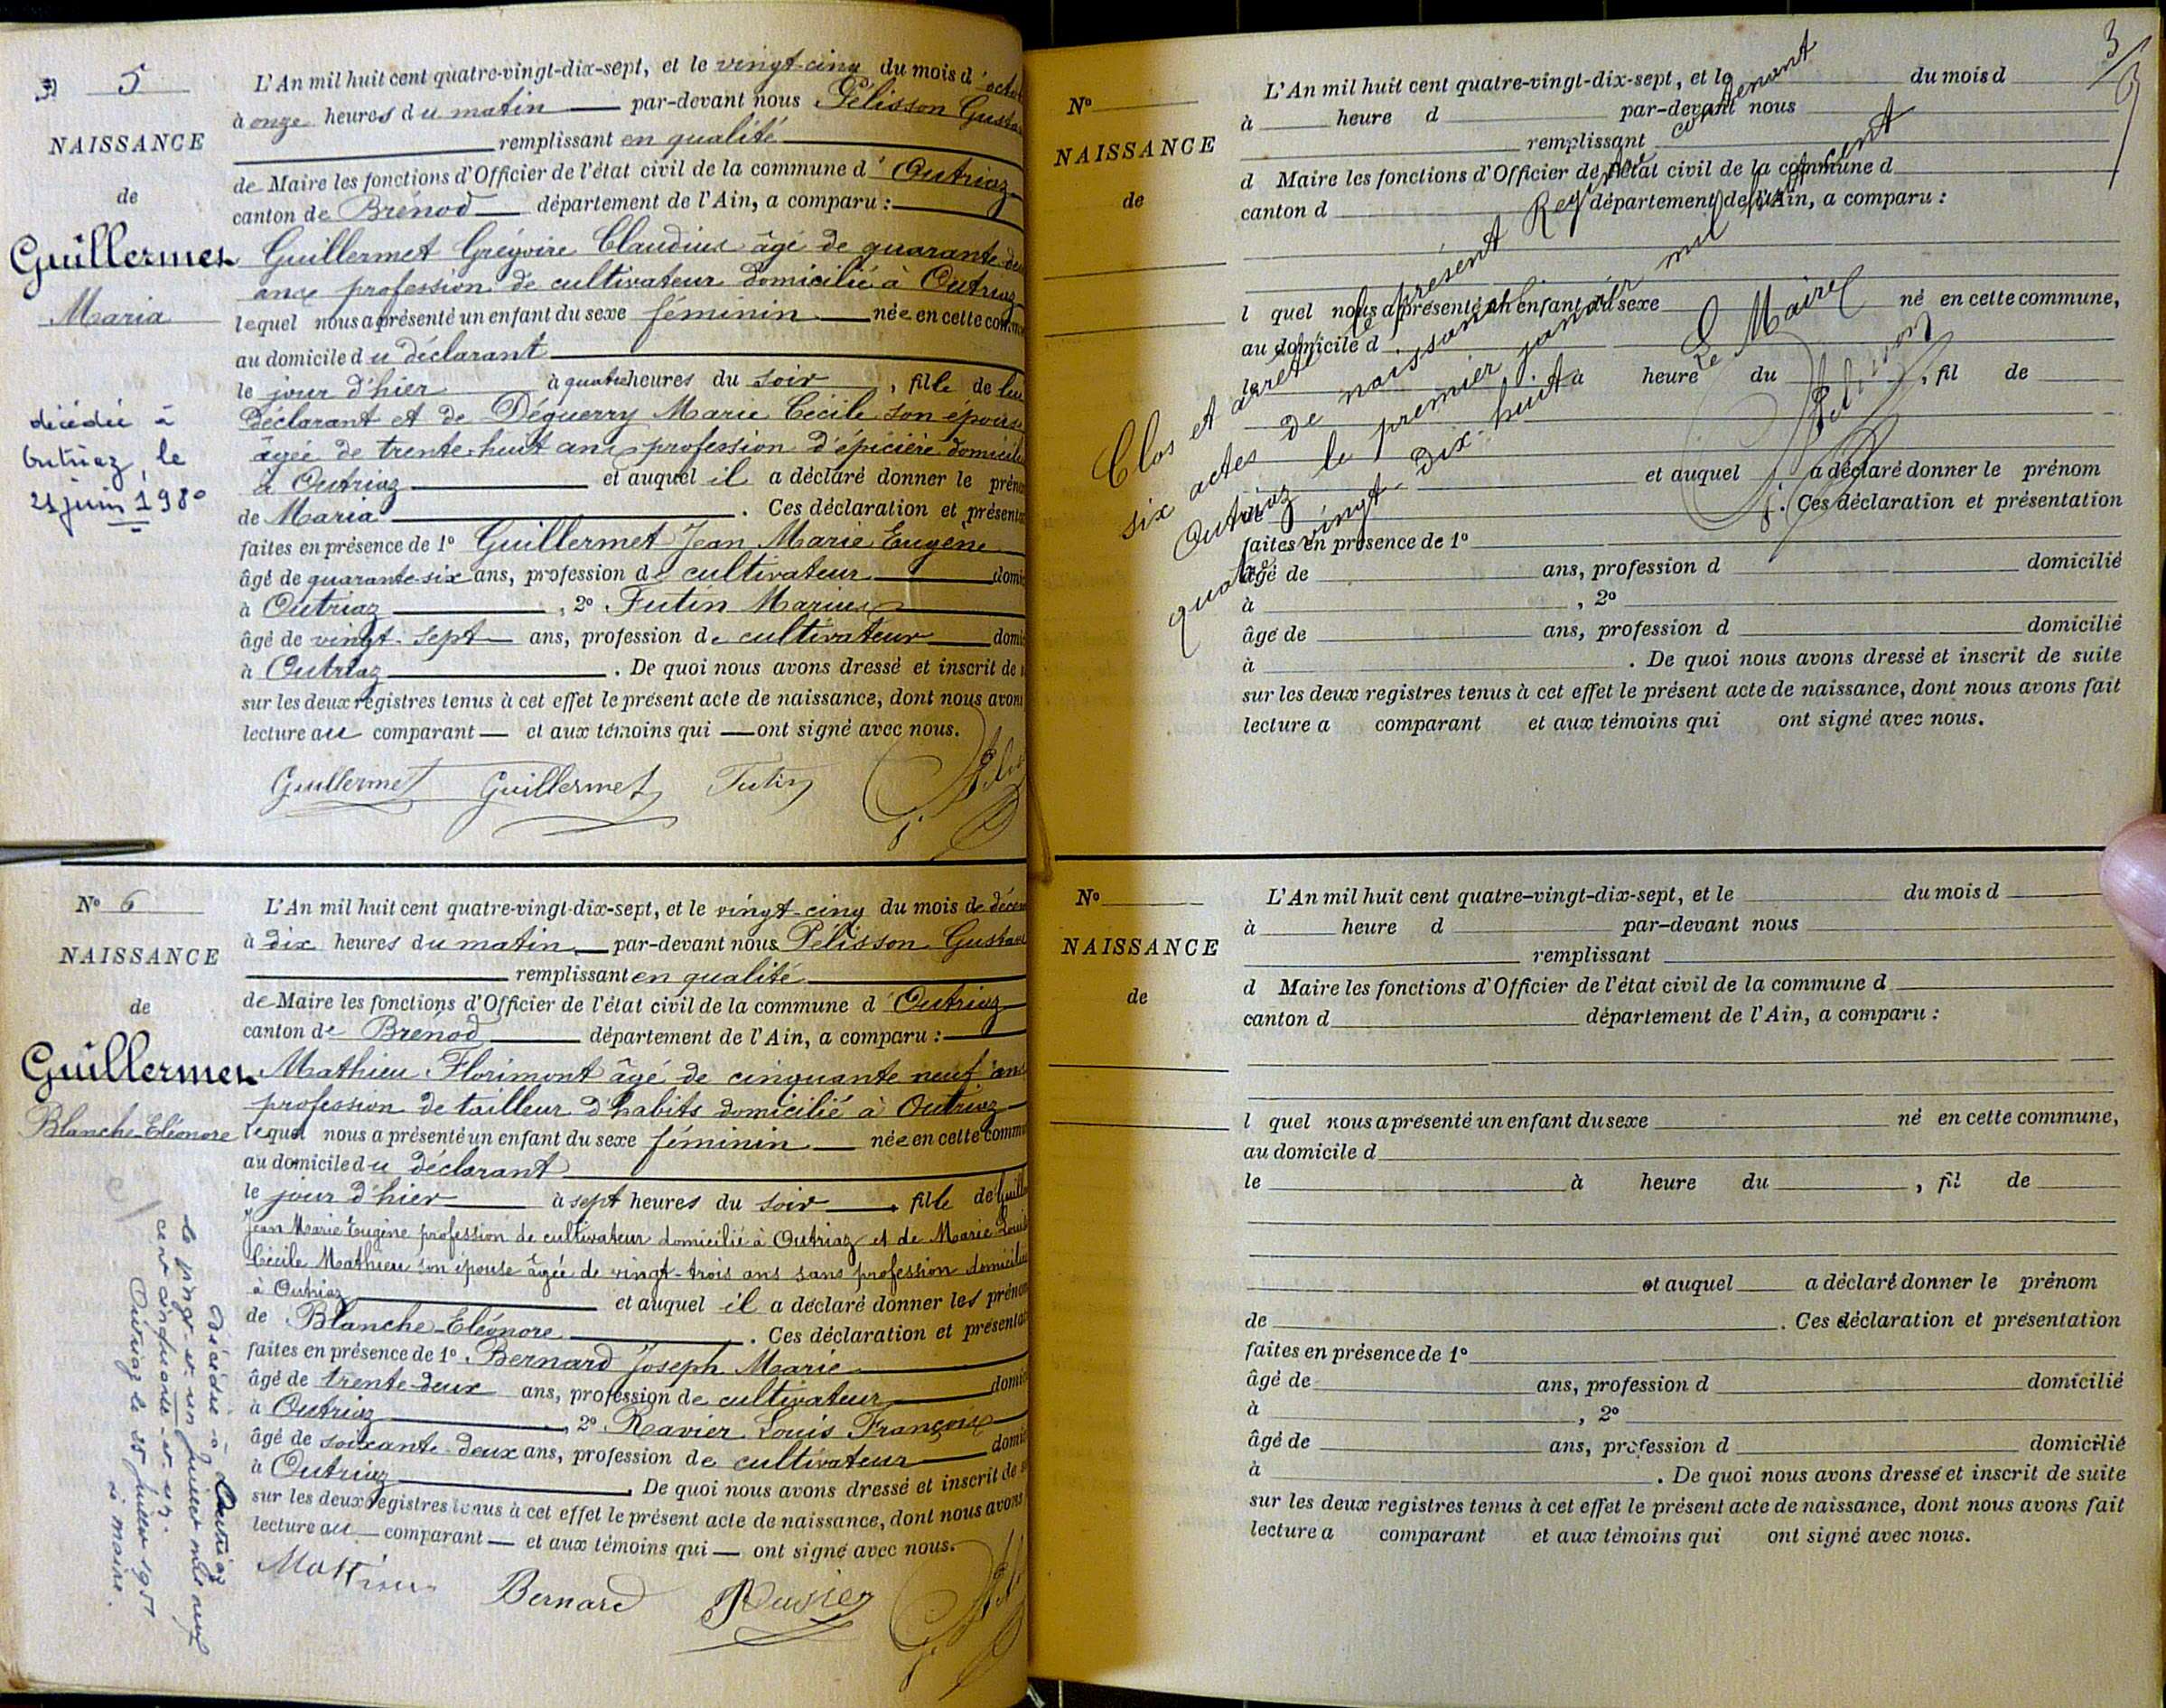 5
NAISSANCE
de
Guillermet
Maria
décédée à
Outriaz, le
21 juin 1980
L'An mil huit cent quatre-vingt-dix-sept, et le vingt-cinq du mois d'octo
à onze heures du matin par-devant nous Pélisson Gusta
remplissant en qualité
de Maire les fonctions d'Officier de l'état civil de la commune d'Outriaz
canton de Brénod département de l'Ain, a comparu :
Guillermet Grégoire Claudius âgé de quarante-deu
ans profession de cultivateur domicilié à Outriaz
lequel nous a présenté un enfant du sexe féminin née en cette comm
au domicile du déclarant
le jour d'hier à quatre heures du soir, fille de lui
déclarant et de Déguerry Marie Cécile son épouse
âgée de trente-huit ans profession d'épicière domicilié
à Outriaz et auquel il a déclaré donner le préno
de Maria. Ces déclaration et présenta
faites en présence de 1° Guillermet Jean Marie Eugène
âgé de quarante-six ans, profession de cultivateur domi
à Outriaz, 2° Tutin Marius
âgé de vingt-sept ans, profession de cultivateur domi
à Outriaz. De quoi nous avons dressé et inscrit de s
sur les deux registres tenus à cet effet le présent acte de naissance, dont nous avons
lecture au comparant et aux témoins qui ont signé avec nous.
Guillermet Guillermet Tutin
N° 6
NAISSANCE
de
Guillermet
Blanche-Eléonore
décédée à Outriaz
le vingt-et-un juillet mil neuf
cent cinquante-et-un.
Outriaz le 25 juillet 1951
le maire.
L'An mil huit cent quatre-vingt-dix-sept, et le vingt-cinq du mois de décem
à dix heures du matin par-devant nous Pélisson Gustave
remplissant en qualité
de Maire les fonctions d'Officier de l'état civil de la commune d'Outriaz
canton de Brénod département de l'Ain, a comparu :
Mathieu Florimont âgé de cinquante neuf ans
profession de tailleur d'habits domicilié à Outriaz
lequel nous a présenté un enfant du sexe féminin née en cette commu
au domicile du déclarant
le jour d'hier à sept heures du soir, fille de Guille
Jean Marie Eugène profession de cultivateur domicilié à Outriaz et de Marie Louise
Cécile Mathieu son épouse âgée de vingt-trois ans sans profession domiciliée
à Outriaz et auquel il a déclaré donner les prénom
de Blanche-Eléonore. Ces déclaration et présentat
faites en présence de 1° Bernard Joseph Marie
âgé de trente-deux ans, profession de cultivateur domi
à Outriaz, 2° Ravier Louis François
âgé de soixante-deux ans, profession de cultivateur domi
à Outriaz. De quoi nous avons dressé et inscrit de s
sur les deux registres tenus à cet effet le présent acte de naissance, dont nous avons
lecture au comparant et aux témoins qui ont signé avec nous.
Mathieu Bernard Ravier
3
N°
NAISSANCE
de
L'An mil huit cent quatre-vingt-dix-sept, et le du mois d
à heure d par-devant nous
remplissant
d Maire les fonctions d'Officier de l'état civil de la commune d
canton d département de l'Ain, a comparu :
l quel nous a présenté un enfant du sexe né en cette commune,
au domicile d
le à heure du , fil de
et auquel a déclaré donner le prénom
de . Ces déclaration et présentation
faites en présence de 1°
âgé de ans, profession d domicilié
à , 2°
âgé de ans, profession d domicilié
à . De quoi nous avons dressé et inscrit de suite
sur les deux registres tenus à cet effet le présent acte de naissance, dont nous avons fait
lecture a comparant et aux témoins qui ont signé avec nous.
Clos et arrêté le présent Registre contenant
six actes de naissance par nous
Outriaz le premier janvier mil huit cent
quatre vingt-dix-huit
Le Maire
Pélisson
N°
NAISSANCE
de
L'An mil huit cent quatre-vingt-dix-sept, et le du mois d
à heure d par-devant nous
remplissant
d Maire les fonctions d'Officier de l'état civil de la commune d
canton d département de l'Ain, a comparu :
l quel nous a présenté un enfant du sexe né en cette commune,
au domicile d
le à heure du , fil de
et auquel a déclaré donner le prénom
de . Ces déclaration et présentation
faites en présence de 1°
âgé de ans, profession d domicilié
à , 2°
âgé de ans, profession d domicilié
à . De quoi nous avons dressé et inscrit de suite
sur les deux registres tenus à cet effet le présent acte de naissance, dont nous avons fait
lecture a comparant et aux témoins qui ont signé avec nous.